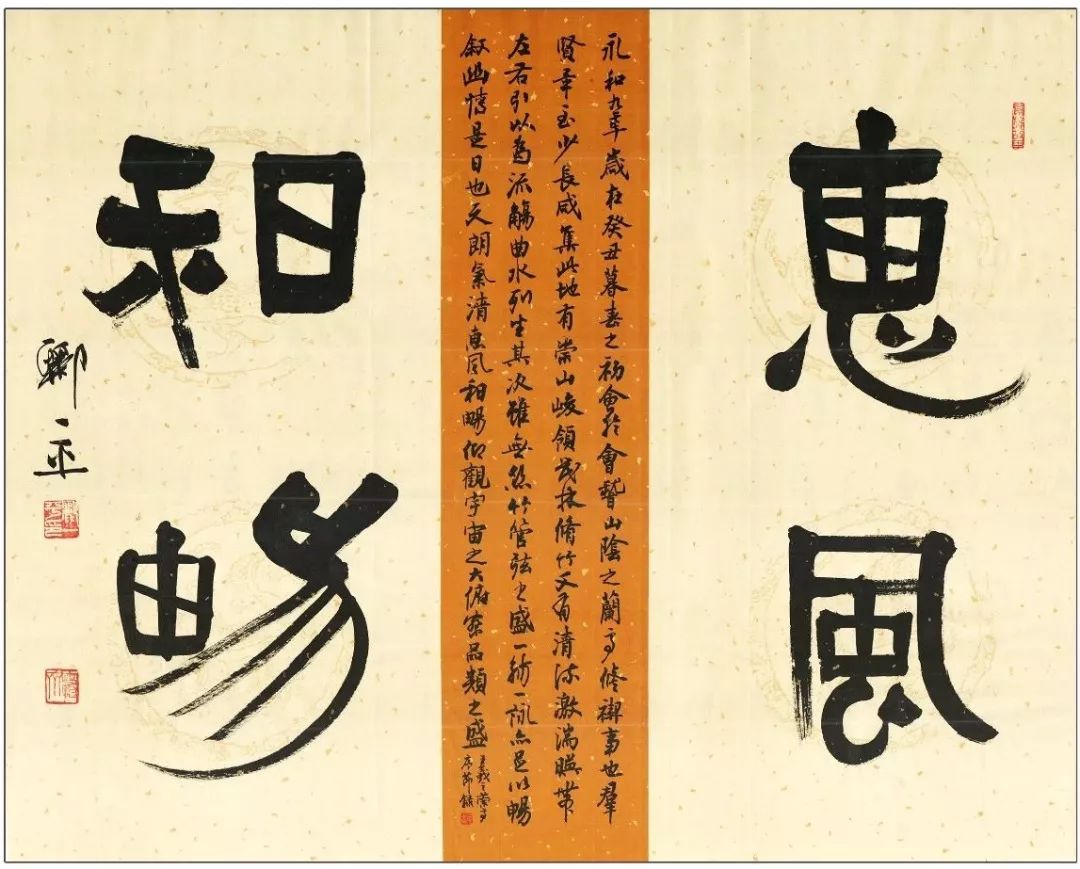 惠風
永和九年歲在癸丑暮春之初會於會稽山陰之蘭亭修禊事也羣
賢畢至少長咸集此地有崇山峻領茂林脩竹又有清流激湍暎帶
左右引以為流觴曲水列坐其次雖無絲竹管弦之盛一觴一詠亦足以暢
敘幽情是日也天朗氣清惠風和暢仰觀宇宙之大俯察品類之盛
王羲之蘭亭
序節錄
和暢